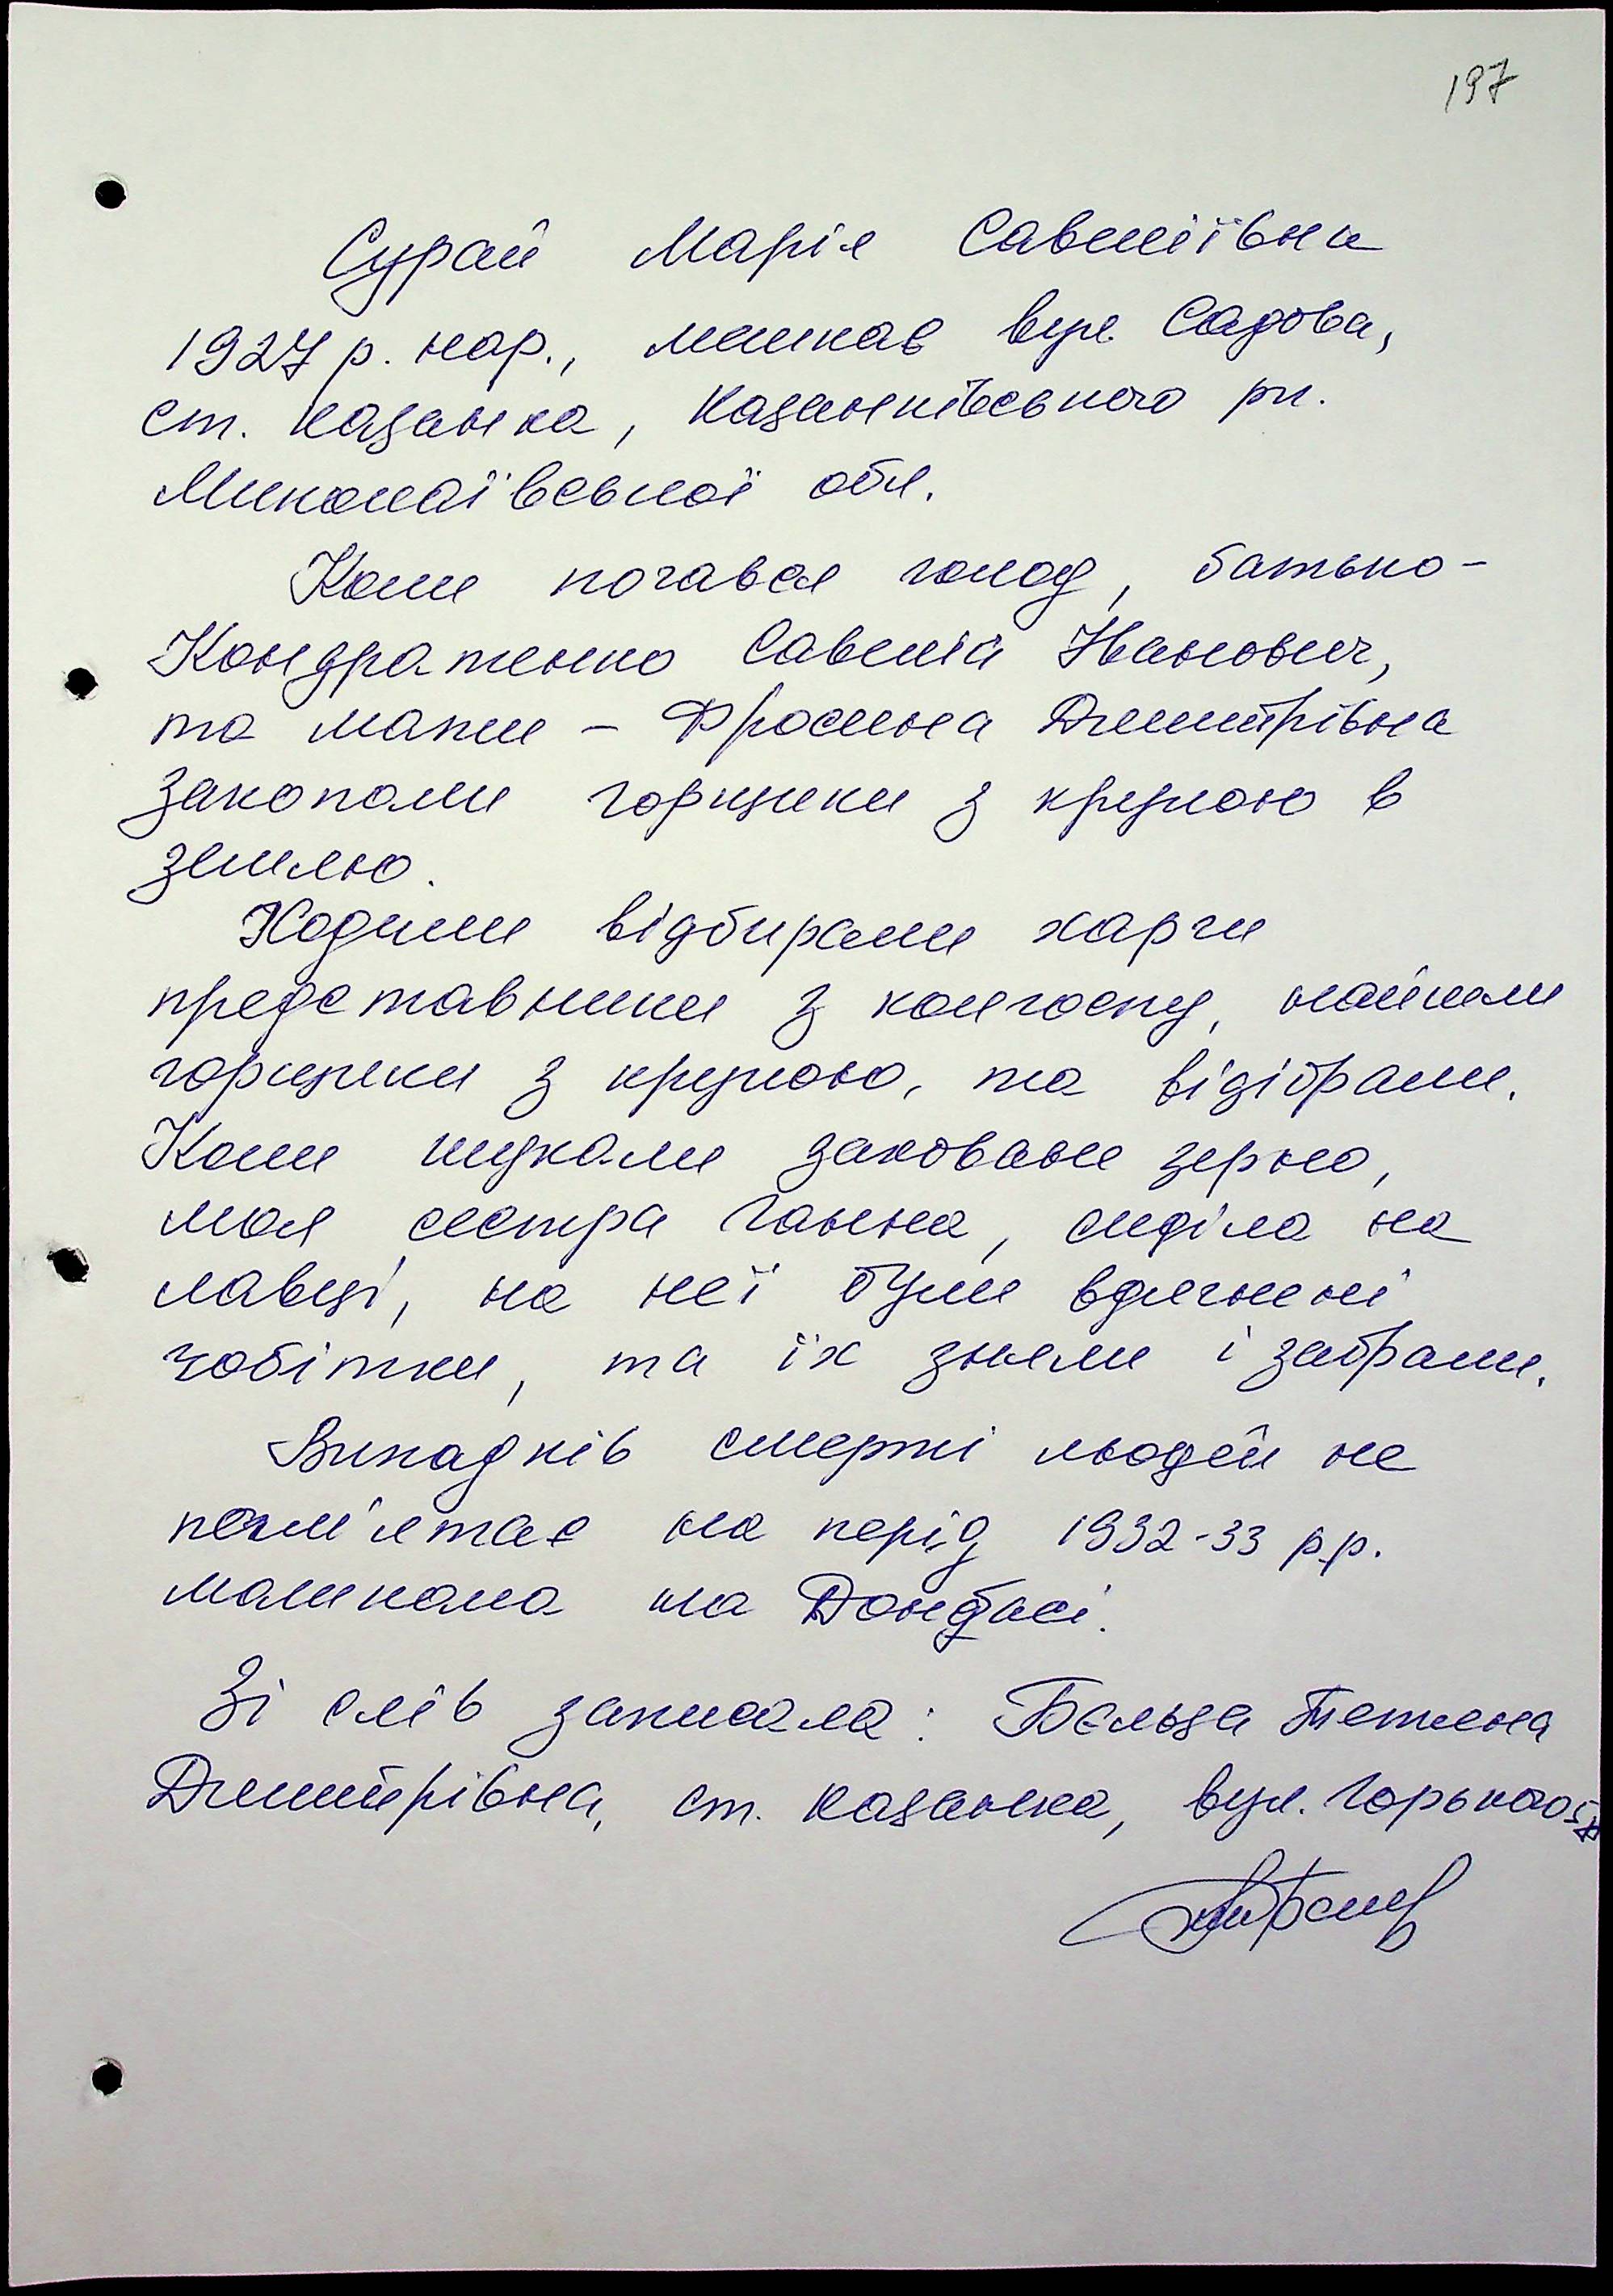 197
Сурай Марія Савеліївна
1927 р. нар., мешкає вул. Садова,
ст. Казанка, Казанківського рн.
Миколаївської обл.
Коли почався голод, батько -
Кондратенко Савелій Іванович,
та мати - Фросина Дмитрівна
закопали горщики з крупою в
землю.
Ходили відбирали харчи
представники з колгоспу, найшли
горщики з крупою, та відібрали.
Коли шукали заховане зерно,
моя сестра Ганна, сиділа на
лавці, на неї були вдягнені
чобітки, та їх зняли і забрали.
Випадків смерті людей не
пам'ятає на перід 1932-33 р.р.
мешкала на Донбасі.
Зі слів записала: Бєльза Тетяна
Дмитрівна, ст. Казанка, вул. Горького